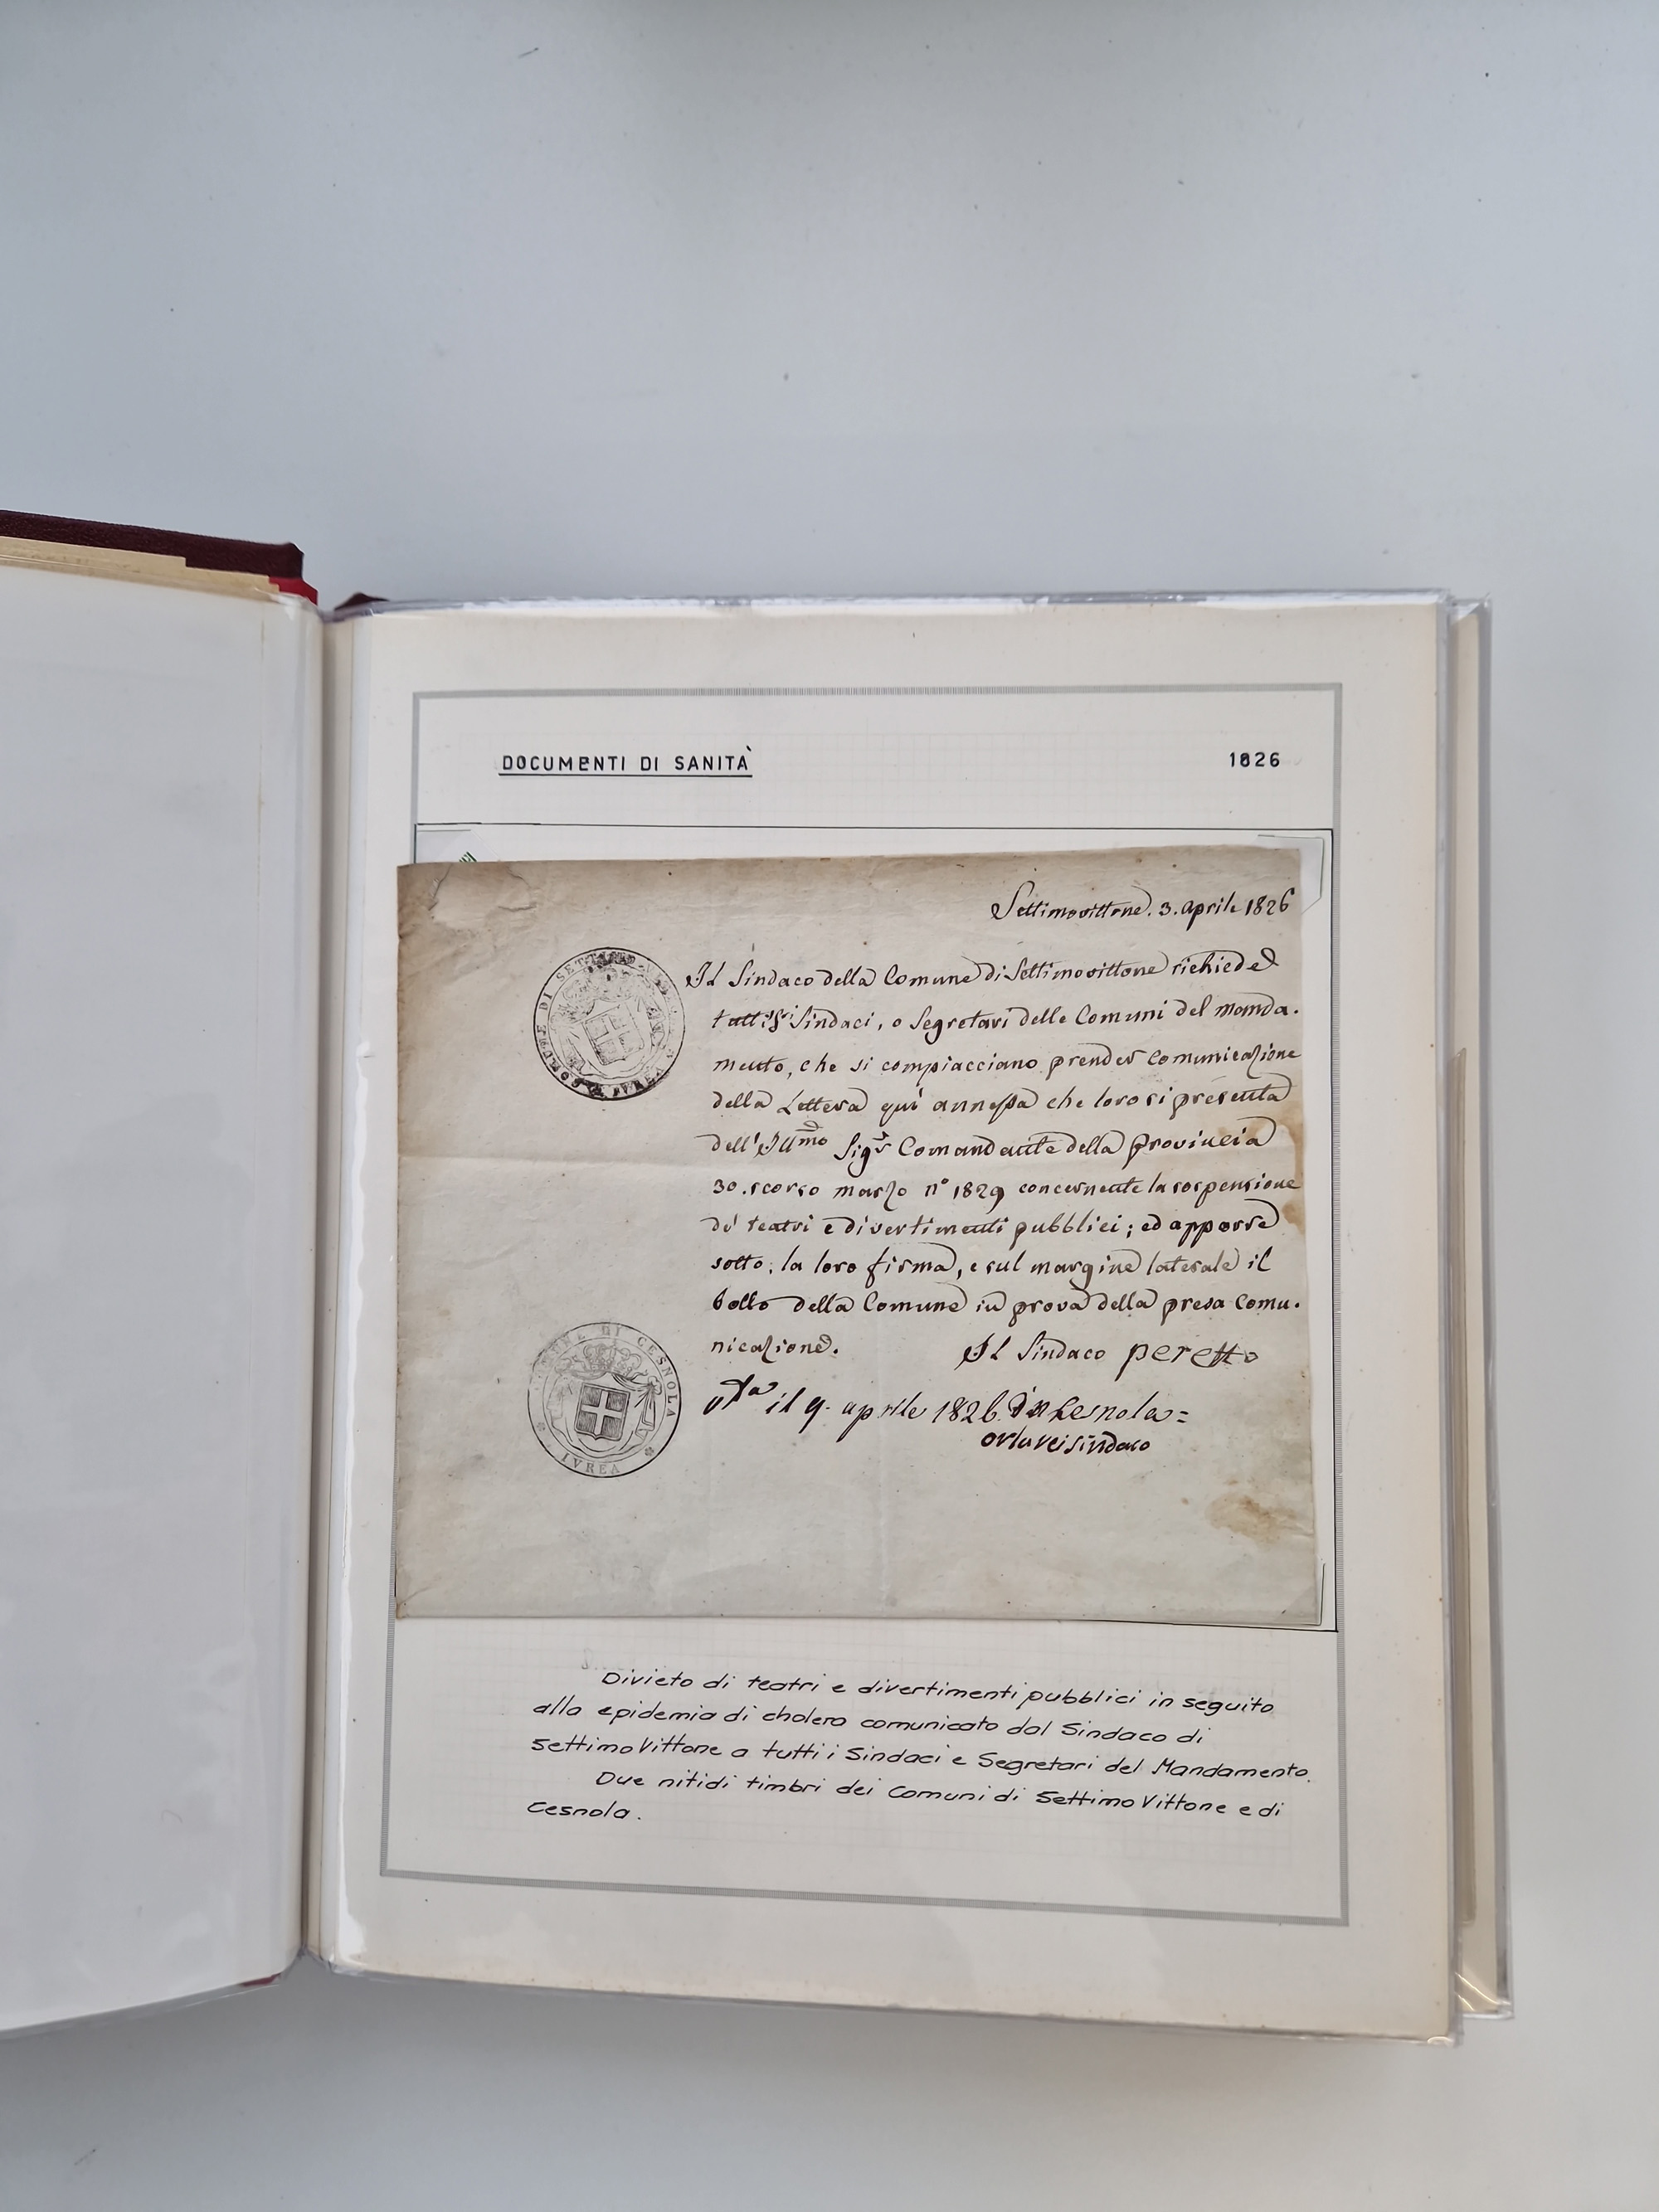 DOCUMENTI DI SANITÀ
1826
Settimovittone. 3. aprile 1826
COMUNE DI SETTIMO VITTONE
IVREA
Il Sindaco della Comune di Settimovittone richiede
tutti Sindaci, o Segretari delle Comuni del manda.
mento, che si compiacciano prender comunicazione
della Lettera qui annessa che loro si presenta
dell'Ill.mo Sig.r Comandante della provincia
30. scorso marzo n° 1829 concernente la sospensione
de' teatri e divertimenti pubblici; ed apporre
sotto, la loro firma, e sul margine laterale il
bollo della Comune in prova della presa comu.
nicazione.
Il Sindaco peretto
COMUNE DI CESNOLA
IVREA
il 9. aprile 1826 in Cesnola=
sindaco
Divieto di teatri e divertimenti pubblici in seguito
alla epidemia di cholera comunicato dal Sindaco di
Settimo Vittone a tutti i Sindaci e Segretari del Mandamento.
Due nitidi timbri dei Comuni di Settimo Vittone e di
Cesnola.